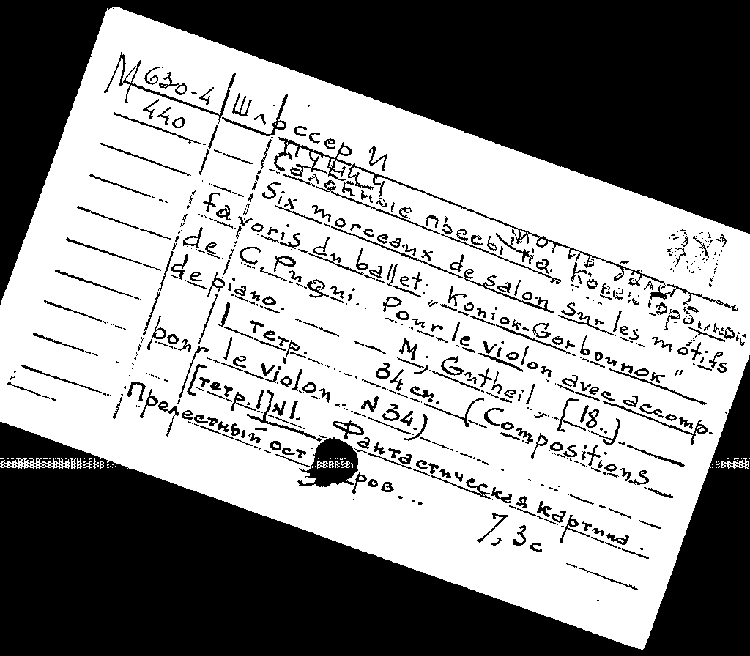 М 630-4
440
Шлоссер И
Пуни Ц
Салонные пьесы на мотив балета
"Конек Горбунок"
Six morceaux de salon sur les motifs
favoris du ballet: "Koniok-Gorbounok"
de C. Pugni. Pour le violon avec accomp.
de piano. — — М; Gutheil, [18..]
1 тетр. 34 см. (Compositions
pour le violon. N 34.)
[тетр. 1] N1. Фантастическая картина.
Прелестный ост
ров...
7, 3 с